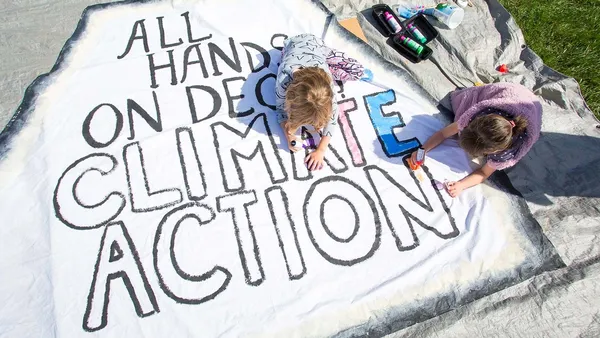 ALL
HANDS
ON DECK
CLIMATE
ACTION